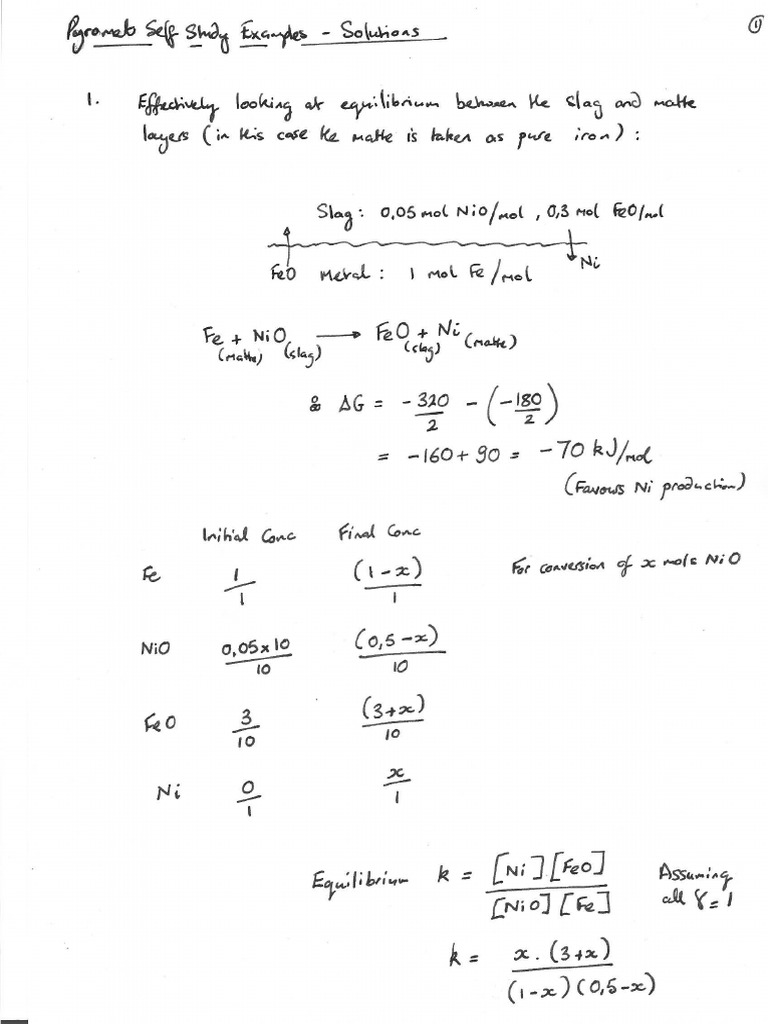 Pyromet Self Study Examples - Solutions
①
1. Effectively looking at equilibrium between the slag and matte
layers (in this case the matte is taken as pure iron) :
Slag : 0,05 mol NiO/mol , 0,3 mol FeO/mol
FeO Metal : 1 mol Fe/mol Ni
Fe + NiO ⟶ FeO + Ni
(matte) (slag) (slag) (matte)
∴ ΔG = -320/2 - (-180/2)
= -160 + 90 = -70 kJ/mol
(Favours Ni production)
Initial Conc Final Conc
Fe 1/1 (1-x)/1 For conversion of x mols NiO
NiO 0,05x10/10 (0,5-x)/10
FeO 3/10 (3+x)/10
Ni 0/1 x/1
Equilibrium k = [Ni][FeO]/[NiO][Fe] Assuming
all γ=1
k = x.(3+x)/(1-x)(0,5-x)